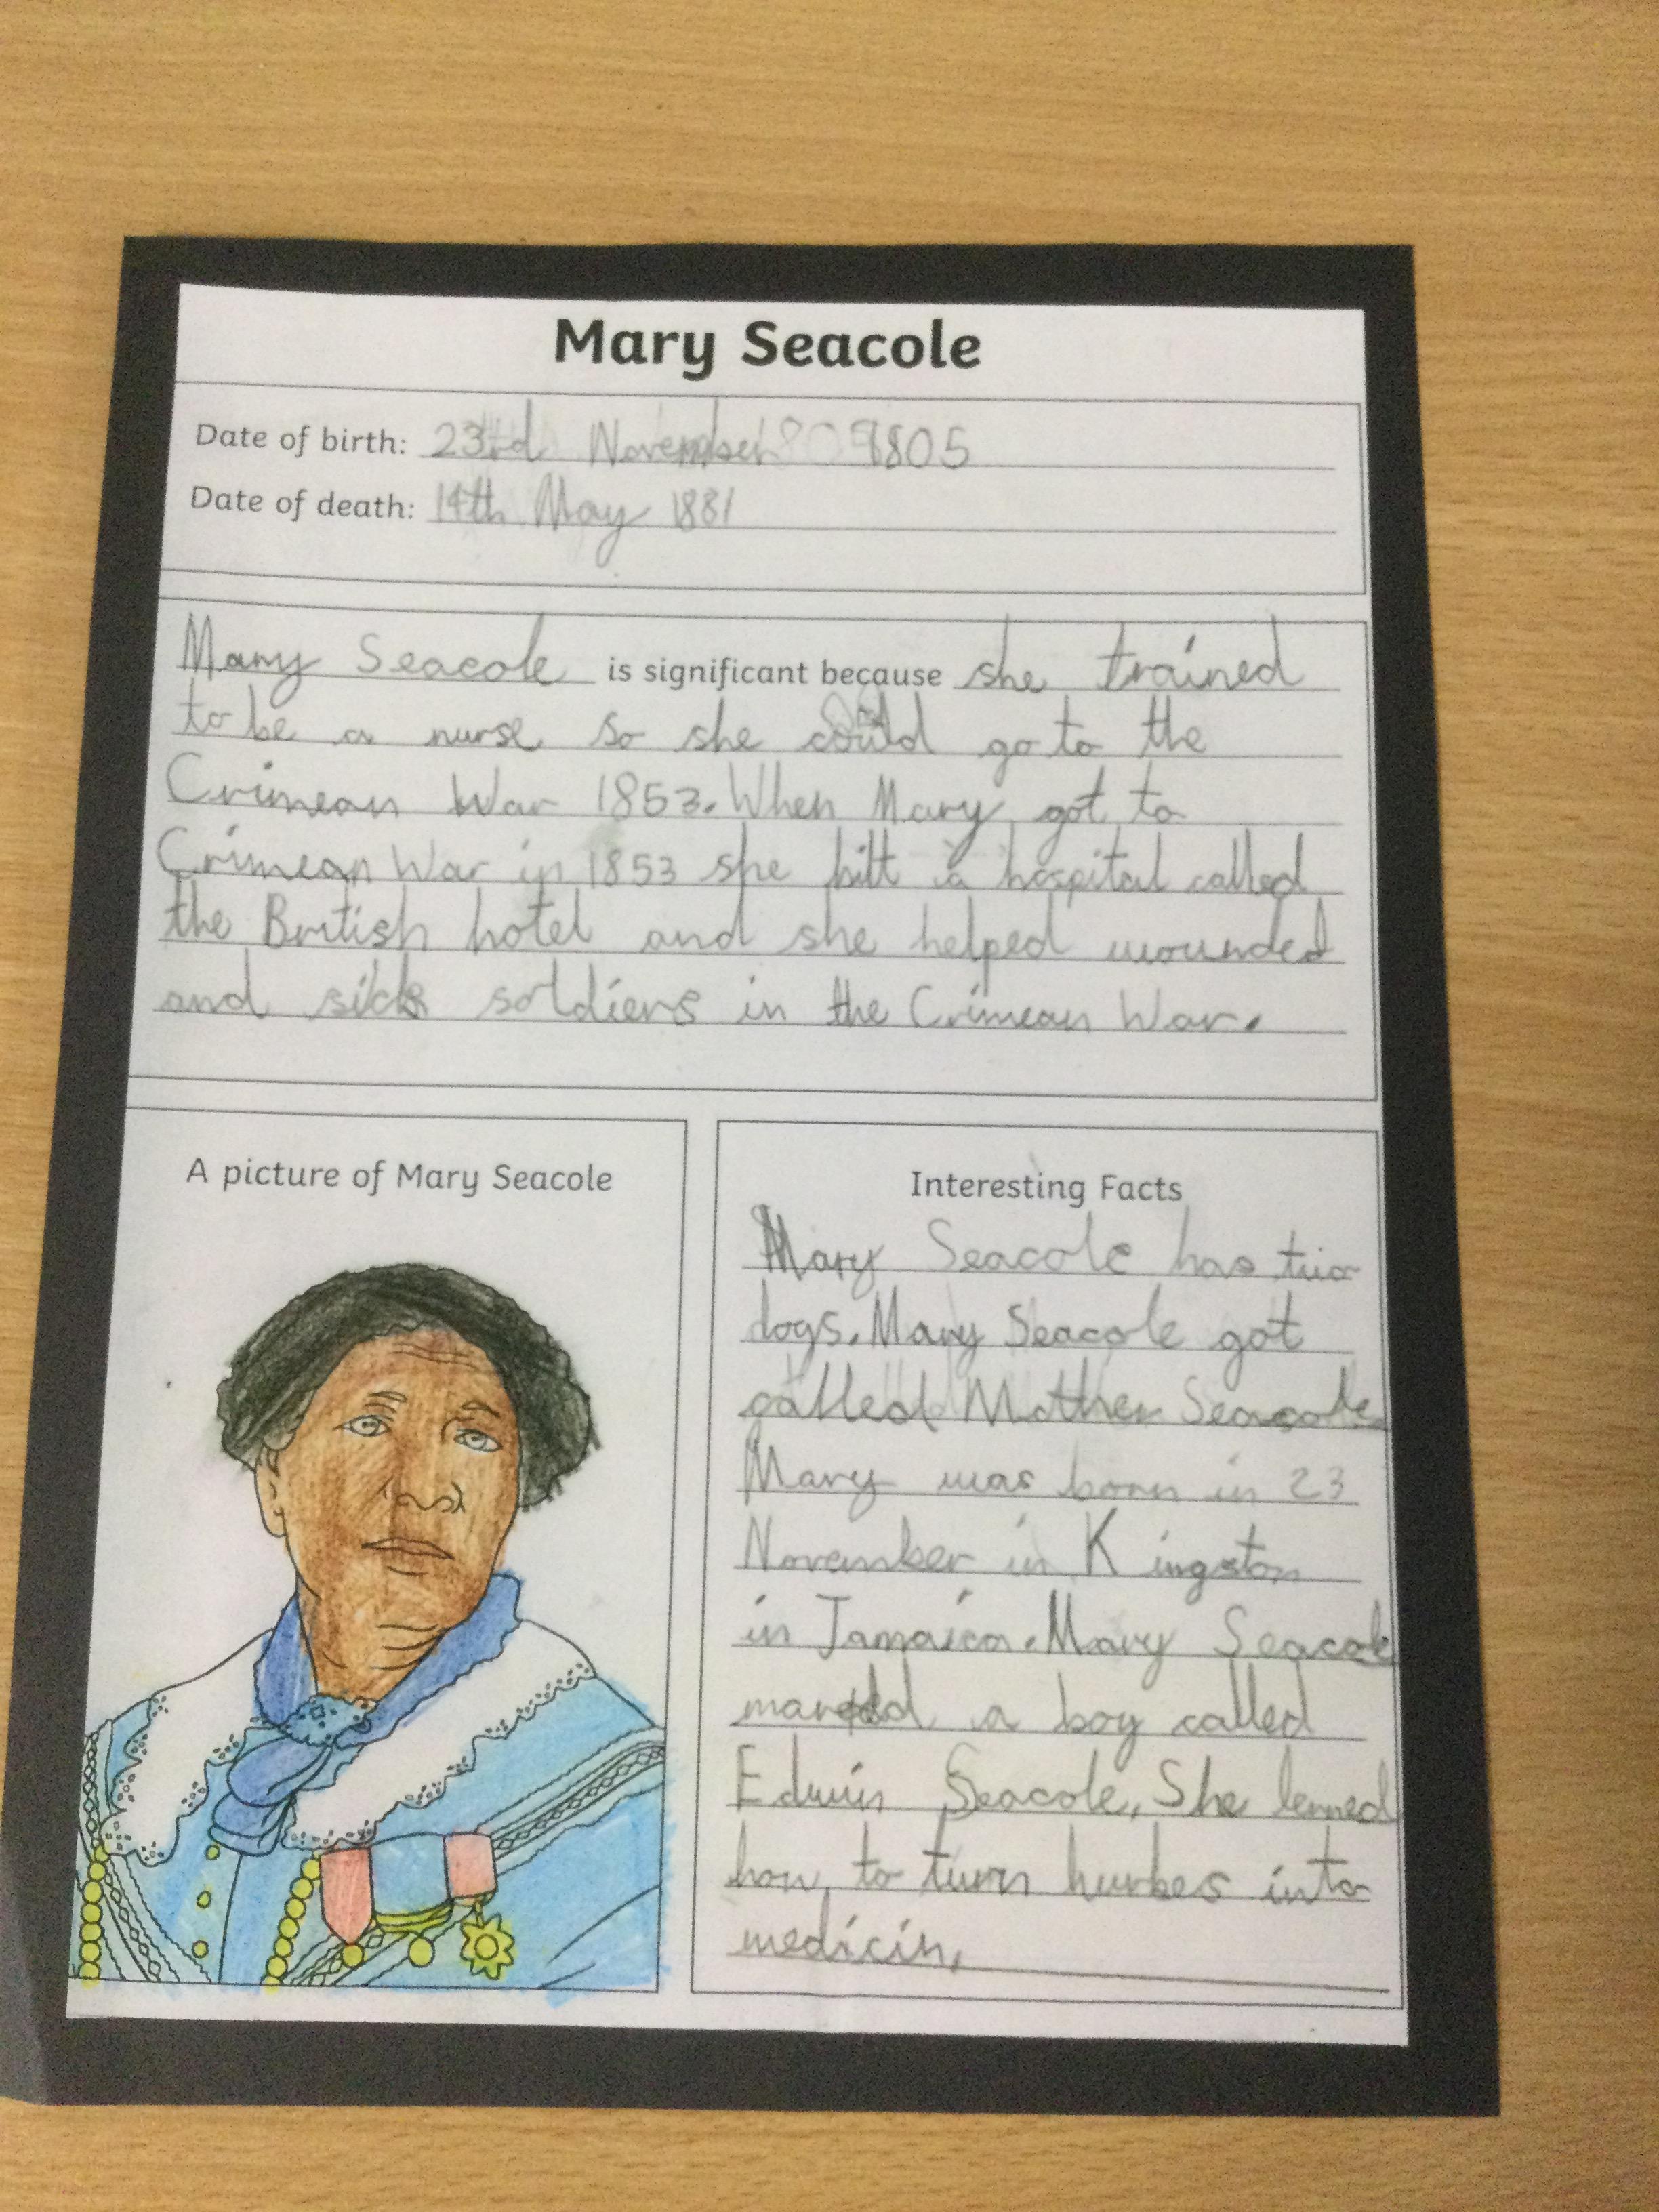 Mary Seacole
Date of birth: 23rd November 1805
Date of death: 14th May 1881
Mary Seacole is significant because she trained
to be a nurse so she could go to the
Crimean War 1853. When Mary got to
Crimean War in 1853 she bilt a hospital called
the British hotel and she helped wounded
and sick soldiers in the Crimean War.
A picture of Mary Seacole
Interesting Facts
Mary Seacole has two
dogs. Mary Seacole got
called Mother Seacole
Mary was born in 23
November in Kingston
in Jamaica. Mary Seacole
a boy called
Edwin Seacole, She lerned
how to turn hurbes into
medicin,